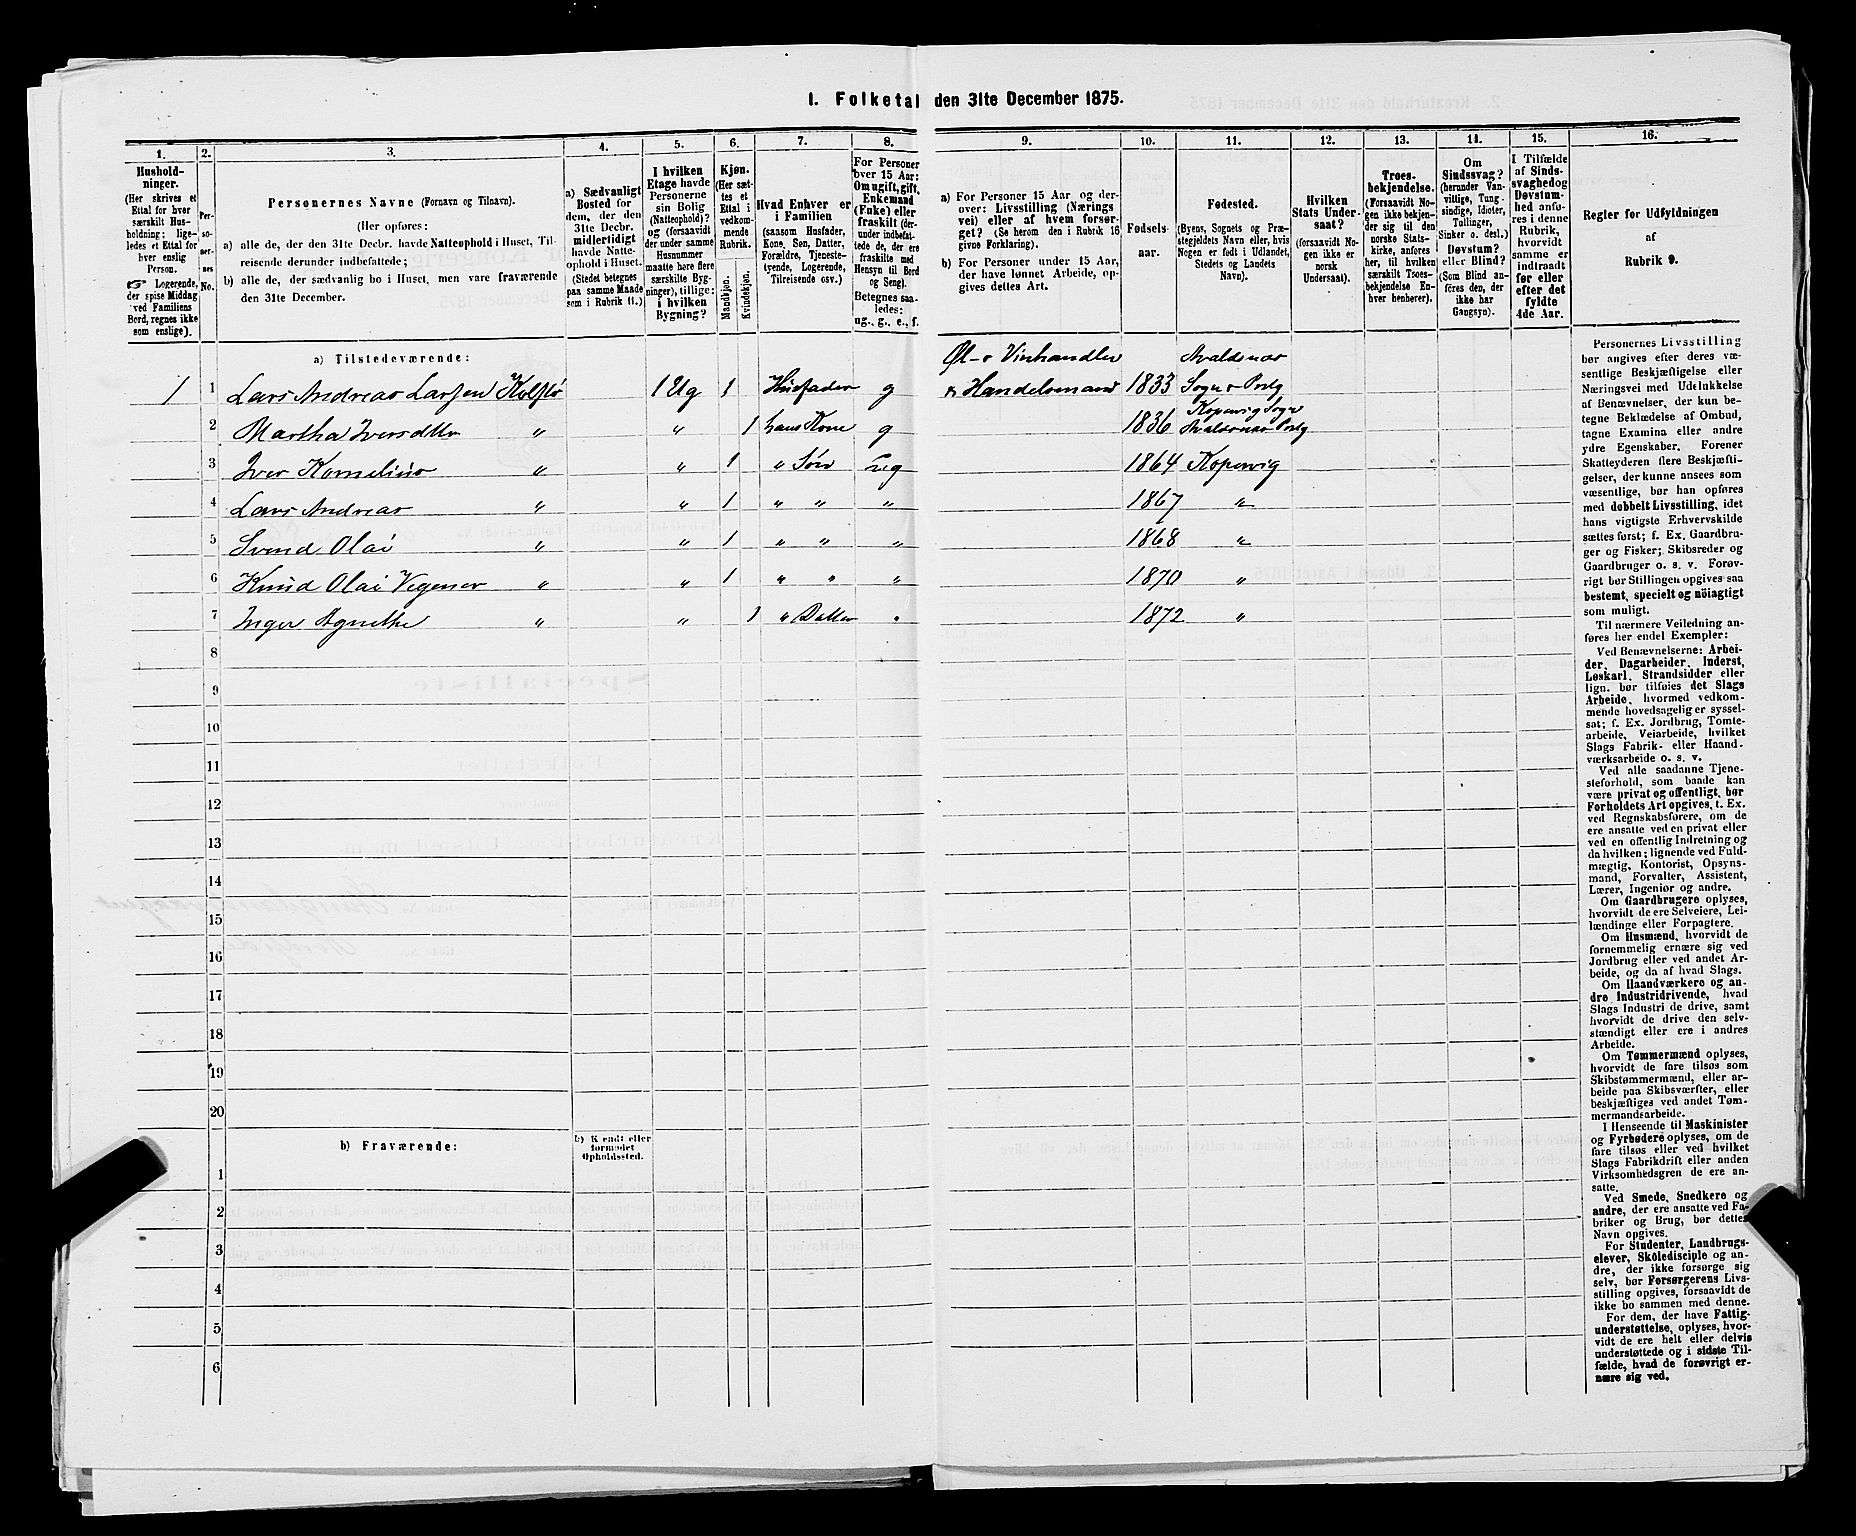 1. Folketal den 31te December 1875.
1.
2.
3.
4.
5.
6.
7.
8.
9.
10.
11.
12.
13.
14.
15.
16.
Hushold-
ninger.
(Her skrives et
Ettal for hver
særskilt Hus-
holdning; lige-
ledes et Ettal for
hver enslig
Person.
☞ Logerende,
der spise Middag
ved Familiens
Bord, regnes ikke
som enslige).
Per-
so-
ner-
nes
No.
Personernes Navne (Fornavn og Tilnavn).
(Her opføres:
a) alle de, der den 31te Decbr. havde Natteophold i Huset, Til-
reisende derunder indbefattede;
b) alle de, der sædvanlig bo i Huset, men vare fraværende
den 31te December.
a) Sædvanligt
Bosted for
dem, der den
31te Decbr.
midlertidigt
havde Natte-
ophold i Huset.
(Stedet betegnes
paa samme Maade
som i Rubrik 11.)
I hvilken
Etage havde
Personerne
sin Bolig
(Natteophold)?
(forsaavidt
der under samme
Husnummer
maatte høre flere
særskilte Byg-
ninger), tillige:
i hvilken
Bygning?
Kjøn.
(Her sæt-
tes et
Ettal i
vedkom-
mende
Rubrik.
Mandkjøn.
Kvindekjøn.
Hvad Enhver er
i Familien
(saasom Husfader,
Kone, Søn, Datter,
Forældre, Tjeneste-
tyende, Logerende,
Tilreisende osv.)
For Personer
over 15 Aar:
Om ugift, gift,
Enkemand
(Enke) eller
fraskilt (der-
under indbefat-
tede de, der ere
fraskilte med
Hensyn til Bord
og Seng).
Betegnes saa-
ledes:
ug., g., e., f.
a) For Personer 15 Aar og der-
over: Livsstilling (Nærings
vei) eller af hvem forsør-
get? (Se herom den i Rubrik 16
givne Forklaring).
b) For Personer under 15 Aar,
der have lønnet Arbeide, op-
gives dettes Art.
Fødsels-
aar.
Fødested.
(Byens, Sognets og Præ-
stegjeldets Navn eller, hvis
Nogen er født i Udlandet,
Stedets og Landets
Navn).
Hvilken
Stats Under-
saat?
(forsaavidt No-
gen ikke er
norsk
Undersaat).
Troes-
bekjendelse.
(Forsaavidt No-
gen ikke bekjen-
der sig til den
norske Stats-
kirke, anføres
her, til hvilken
særskilt Troes-
bekjendelse En-
hver henhører).
Om
Sindssvag?
(herunder Van-
vittige, Tung-
sindige, Idioter,
Tullinger,
Sinker o. desl.)
Døvstum?
eller Blind?
(Som Blind an-
føres den, der
ikke har
Gangsyn).
I Tilfælde
af Sinds-
svaghed og
Døvstum-
hed anfø-
res i denne
Rubrik,
hvorvidt
samme er
indtraadt
før eller
efter det
fyldte
4de Aar.
Regler for Udfyldningen
af
Rubrik 9.
a) Tilstedeværende:
Øl- o Vinhandler Avaldsnæs
1 1 Lars Andreas Larsen Kolstø 1 Etg 1 Husfader g & Handelsmand 1833 Sogn o Pstg
Kopervig Sogn
2 Martha Iversdtter " " 1 hans Kone g 1836 Avaldsnæs Pstg
3 Iver Kornelius " " 1 " Søn ug 1864 Kopervig
4 Lars Andreas " " 1 " " " 1867 "
5 Svend Olai " " 1 " " " 1868 "
6 Knud Olai Vegener " " 1 " " " 1870 "
7 Inger Agnethe " " 1 " Datter " 1872 "
8
9
10
11
12
13
14
15
16
17
18
19
20
b) Fraværende:
b) Kjendt eller
formodet
Opholdssted.
1
2
3
4
5
6
Personernes Livsstilling
bør angives efter deres væ-
sentlige Beskjæftigelse eller
Næringsvei med Udelukkelse
af Benævnelser, der kun be-
tegne Beklædelse af Ombud,
tagne Examina eller andre
ydre Egenskaber. Forener
Skatteyderen flere Beskjæfti-
gelser, der kunne ansees som
væsentlige, bør han opføres
med dobbelt Livsstilling, idet
hans vigtigste Erhvervskilde
sættes først; f. Ex. Gaardbru-
ger og Fisker; Skibsreder og
Gaardbruger o. s. v. Forøv-
rigt bør Stillingen opgives saa
bestemt, specielt og nöiagtigt
som muligt.
Til nærmere Veiledning an-
føres her endel Exempler:
Ved Benævnelserne: Arbei-
der, Dagarbeider, Inderst,
Løskarl, Strandsidder eller
lign. bør tilføies det Slags
Arbeide, hvormed vedkom-
mende hovedsagelig er syssel-
sat; f. Ex. Jordbrug, Tomte-
arbeide, Veiarbeide, hvilket
Slags Fabrik- eller Haand-
værksarbeide o. s. v.
Ved alle saadanne Tjene-
steforhold, som baade kan
være privat og offentligt, bør
Forholdets Art opgives, t. Ex.
ved Regnskabsførere, om de
ere ansatte ved en privat eller
ved en offentlig Indretning og
da hvilken; lignende ved Fuld-
mægtig, Kontorist, Opsyns-
mand, Forvalter, Assistent,
Lærer, Ingeniør og andre.
Om Gaardbrugere oplyses,
hvorvidt de ere Selveiere, Lei-
lændinge eller Forpagtere.
Om Husmænd, hvorvidt de
fornemmelig ernære sig ved
Jordbrug eller ved andet Ar-
beide, og da af hvad Slags.
Om Haandværkere og an-
dre Industridrivende, hvad
Slags Industri de drive, samt
hvorvidt de drive den selv-
stændigt eller ere i andres
Arbeide.
Om Tømmermænd oplyses,
hvorvidt de fare tilsøs som
Skibstømmermænd, eller ar-
beide paa Skibsværfter, eller
beskjæftiges ved andet Tøm-
mermandsarbeide.
I Henseende til Maskinister
og Fyrbødere oplyses, om de
fare tilsøs eller ved hvilket
Slags Fabrikdrift eller anden
Virksomhedsgren de ere an-
satte.
Ved Smede, Snedkere og
andre, der ere ansatte ved Fa-
briker og Brug, bør dettes
Navn opgives.
For Studenter, Landbrugs-
elever, Skoledisciple og an-
dre, der ikke forsørge sig
selv, bør Forsørgerens Livs-
stilling opgives, forsaavidt de
ikke bo sammen med denne.
For dem, der have Fattig-
understøttelse, oplyses, hvor-
vidt de ere helt eller delvis
understøttede og i sidste Til-
fælde, hvad de forøvrigt er-
nære sig ved.